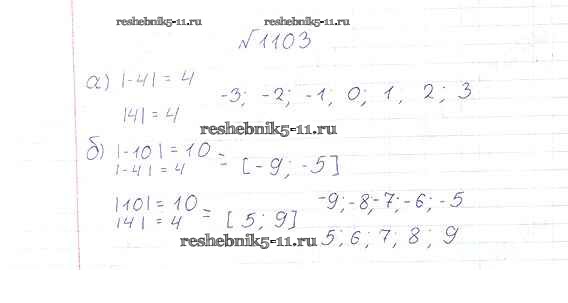 reshebnik5-11.ru reshebnik5-11.ru
№1103
а) |-4| = 4
-3; -2; -1; 0; 1, 2; 3
|4| = 4
reshebnik5-11.ru
б) |-10| = 10
|-4| = 4 = [-9; -5]
|10| = 10 -9; -8; -7; -6; -5
|4| = 4 = [5; 9]
reshebnik5-11.ru 5; 6; 7; 8; 9